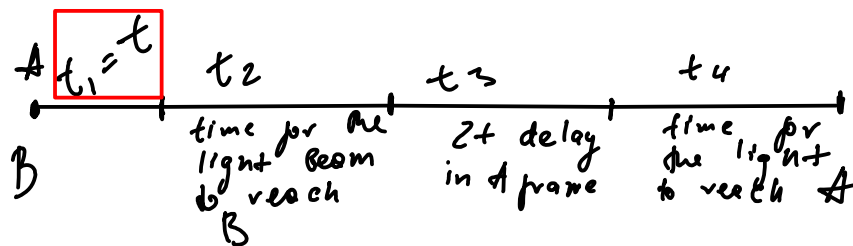 A t₁ = t t₂ t₃ t₄
B
time for the
light beam
to reach
B
2t delay
in A frame
time for
the light
to reach A